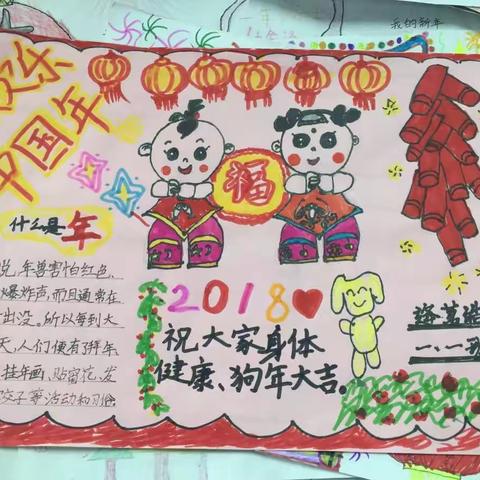 我的新年
欢乐
中国年
什么是年
说,年兽害怕红色、
爆炸声,而且通常在
出没。所以每到大
天,人们便有拜年、
挂年画、贴窗花、发
饺子等活动和习俗
福
2018
祝大家身体
健康、狗年大吉。
一、一班